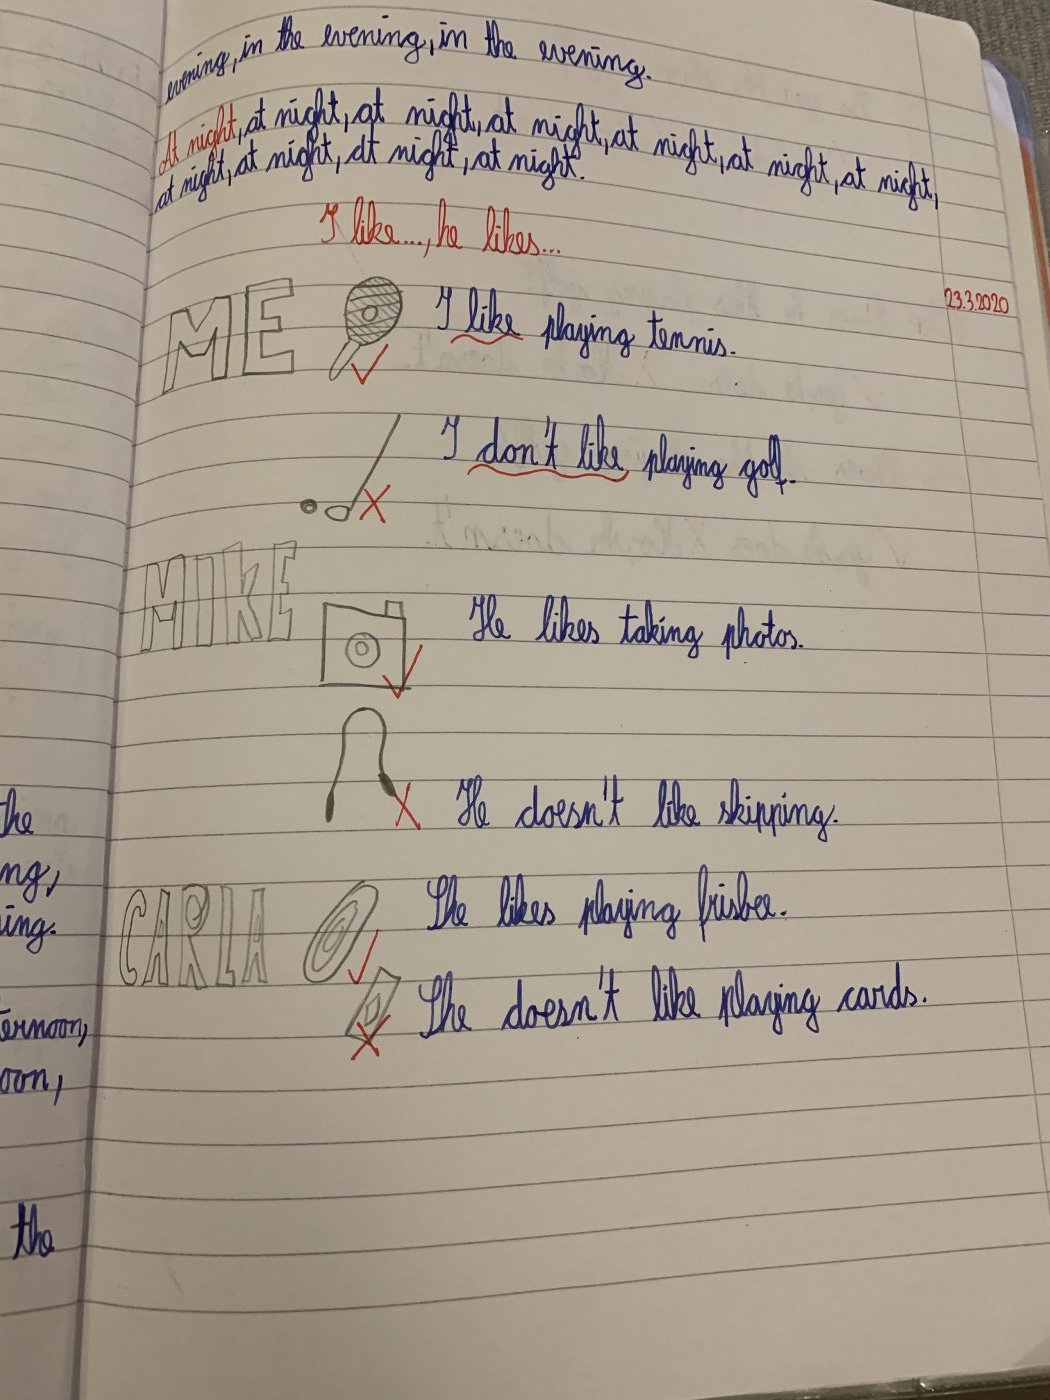 evening, in the evening, in the evening.
At night, at night, at night, at night, at night, at night, at night,
at night, at night, at night, at night.
I like..., he likes...
23.3.2020
ME
I like playing tennis.
I don't like playing golf.
MIKE
He likes taking photos.
He doesn't like skipping.
the
ng,
CARLA
She likes playing frisbee.
ing.
She doesn't like playing cards.
ternoon,
oon,
the